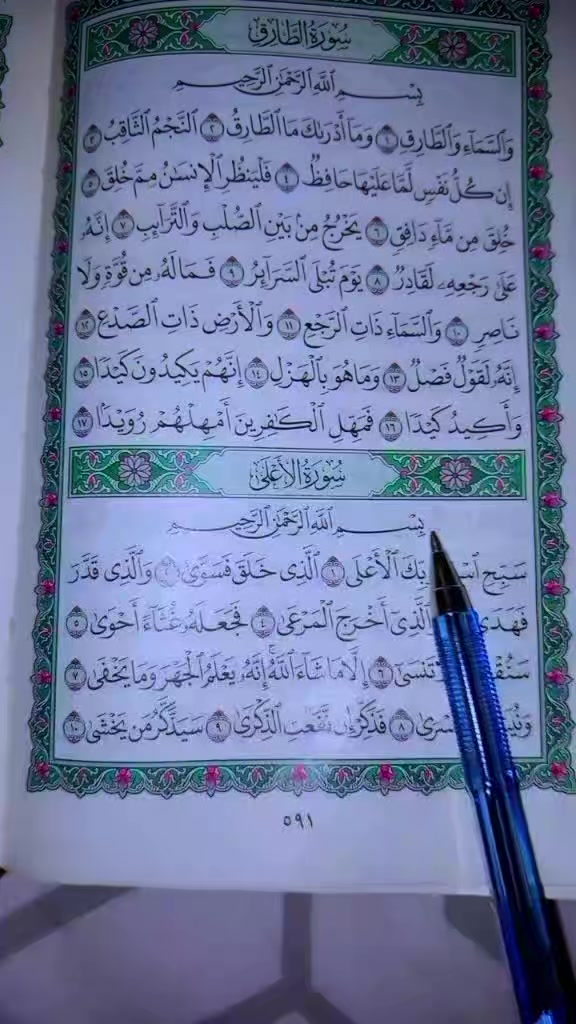 سُورَةُ الطَّارِقِ
بِسْمِ اللَّهِ الرَّحْمَٰنِ الرَّحِيمِ
وَالسَّمَاءِ وَالطَّارِقِ ١ وَمَا أَدْرَاكَ مَا الطَّارِقُ ٢ النَّجْمُ الثَّاقِبُ ٣
إِن كُلُّ نَفْسٍ لَّمَّا عَلَيْهَا حَافِظٌ ٤ فَلْيَنظُرِ الْإِنسَٰنُ مِمَّ خُلِقَ ٥
خُلِقَ مِن مَّاءٍ دَافِقٍ ٦ يَخْرُجُ مِنۢ بَيْنِ الصُّلْبِ وَالتَّرَائِبِ ٧ إِنَّهُۥ
عَلَىٰ رَجْعِهِۦ لَقَادِرٌ ٨ يَوْمَ تُبْلَى السَّرَائِرُ ٩ فَمَا لَهُۥ مِن قُوَّةٍ وَلَا
نَاصِرٍ ١٠ وَالسَّمَاءِ ذَاتِ الرَّجْعِ ١١ وَالْأَرْضِ ذَاتِ الصَّدْعِ ١٢
إِنَّهُۥ لَقَوْلٌ فَصْلٌ ١٣ وَمَا هُوَ بِالْهَزْلِ ١٤ إِنَّهُمْ يَكِيدُونَ كَيْدًا ١٥
وَأَكِيدُ كَيْدًا ١٦ فَمَهِّلِ الْكَٰفِرِينَ أَمْهِلْهُمْ رُوَيْدًا ١٧
سُورَةُ الأَعْلَىٰ
بِسْمِ اللَّهِ الرَّحْمَٰنِ الرَّحِيمِ
سَبِّحِ الْأَعْلَى ١ الَّذِي خَلَقَ فَسَوَّىٰ ٢ وَالَّذِي قَدَّرَ
فَهَدَىٰ أَخْرَجَ الْمَرْعَىٰ ٤ فَجَعَلَهُۥ غُثَاءً أَحْوَىٰ ٥
تَنسَىٰ ٦ إِلَّا مَا شَاءَ اللَّهُ إِنَّهُۥ يَعْلَمُ الْجَهْرَ وَمَا يَخْفَىٰ ٧
٨ فَذَكِّرْ إِن نَّفَعَتِ الذِّكْرَىٰ ٩ سَيَذَّكَّرُ مَن يَخْشَىٰ ١٠
٥٩١